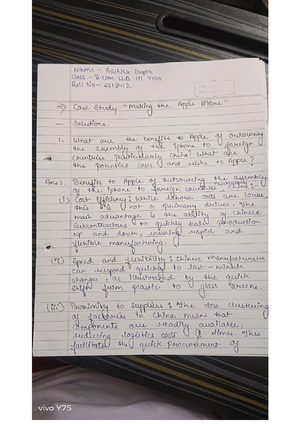 Name - Aachka Gupta
Class - B.COM LLB 1st Year
Roll No - 2213412.
⇒ Case Study "Making the Apple iPhone"
— Solutions.
1. What are the benefits to Apple of outsourcing
the assembly of the iphone to foreign
countries particularly China? What are
the potential costs and risks to Apple?
Ans1. Benefits to Apple of outsourcing the assembly
of the iphone to foreign countries particularly China :
(i) Cost Efficiency : While labour costs are lower,
this is not a primary driver. The
main advantage is the ability of Chinese
Subcontractors to quickly scale production
up and down, ensuring rapid and
flexible manufacturing.
(ii) Speed and flexibility : Chinese manufacturers
can respond quickly to last-minute
changes, as illustrated by the quick
shift from plastic to glass screens.
(iii) Proximity to Suppliers : The close clustering
of factories in China means that
components are readily available,
reducing logistics costs & times. This
facilitates the quick procurement of
vivo Y75